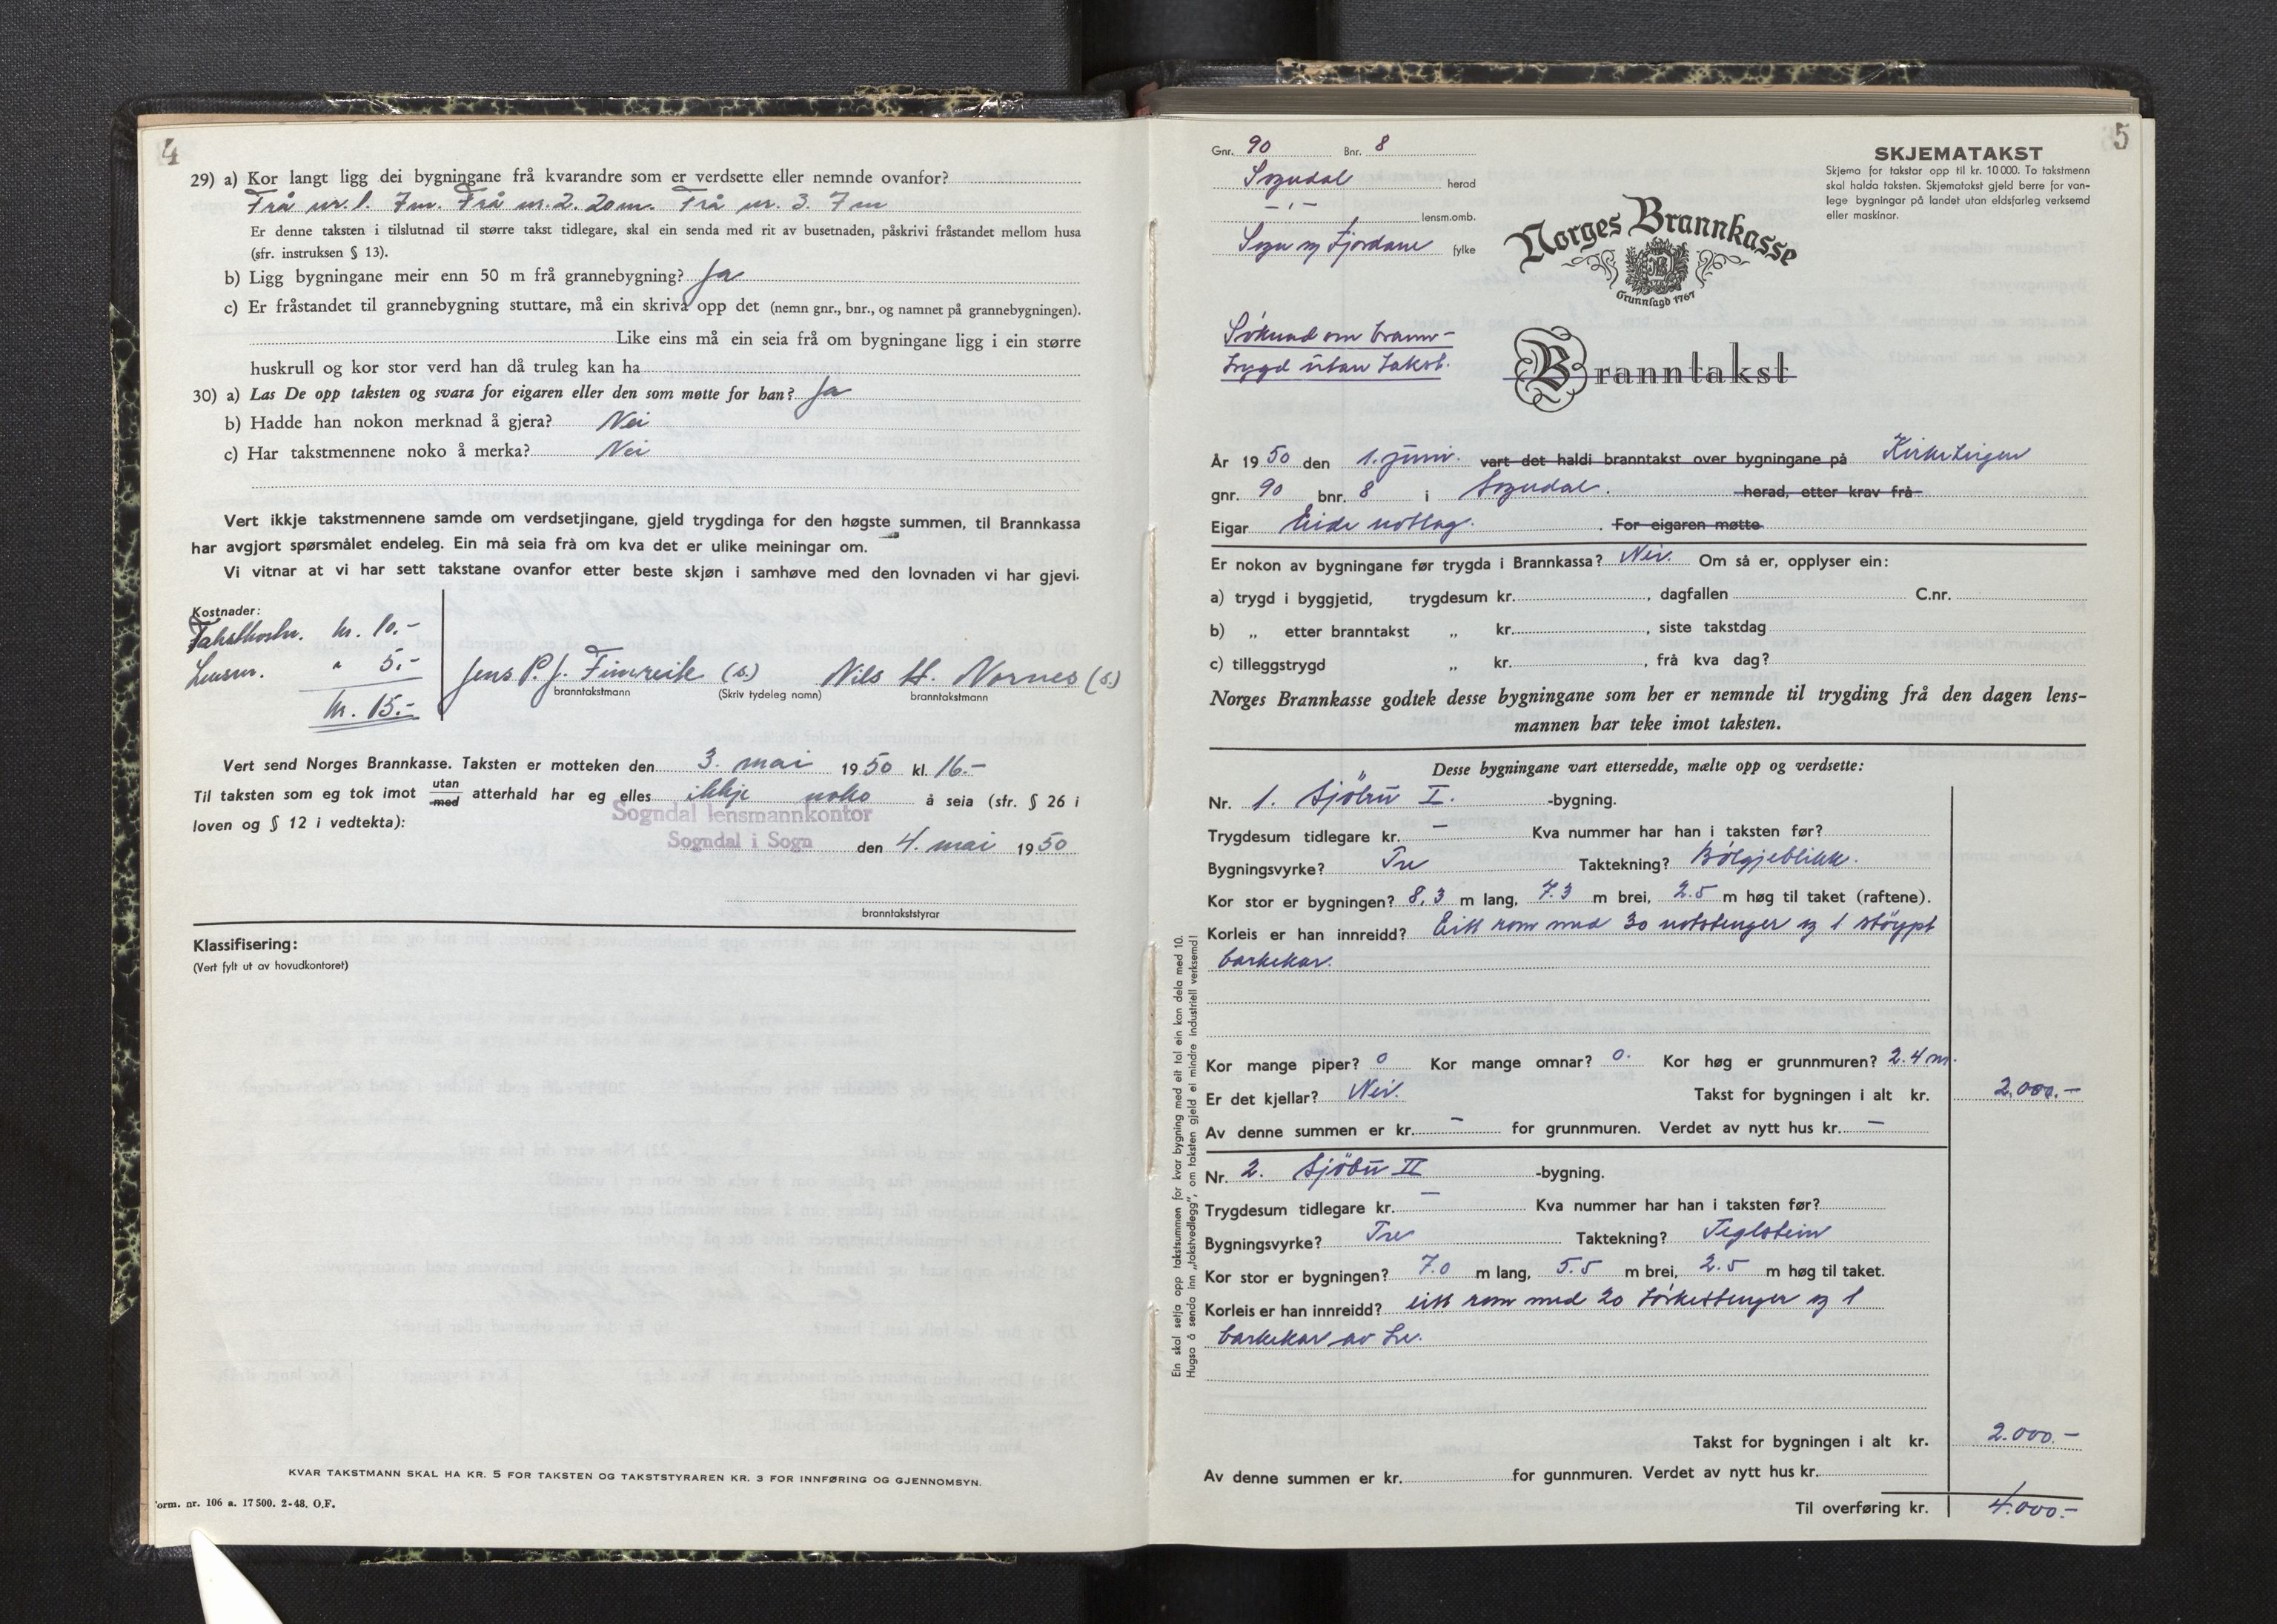 4
29) a) Kor langt ligg dei bygningane frå kvarandre som er verdsette eller nemnde ovanfor?
Frå nr. 1. 7m. Frå nr. 2. 20m. Frå nr. 3. 7m
Er denne taksten i tilslutnad til større takst tidlegare, skal ein senda med rit av busetnaden, påskrivi fråstandet mellom husa
(sfr. instruksen § 13).
b) Ligg bygningane meir enn 50 m frå grannebygning? Ja
c) Er fråstandet til grannebygning stuttare, må ein skriva opp det (nemn gnr., bnr., og namnet på grannebygningen).
Like eins må ein seia frå om bygningane ligg i ein større
huskrull og kor stor verd han då truleg kan ha
30) a) Las De opp taksten og svara for eigaren eller den som møtte for han? Ja
b) Hadde han nokon merknad å gjera? Nei
c) Har takstmennene noko å merka? Nei
Vert ikkje takstmennene samde om verdsetjingane, gjeld trygdinga for den høgste summen, til Brannkassa
har avgjort spørsmålet endeleg. Ein må seia frå om kva det er ulike meiningar om.
Vi vitnar at vi har sett takstane ovanfor etter beste skjøn i samhøve med den lovnaden vi har gjevi.
Kostnader:
Takstkostn. kr. 10.-
Lensm. " 5.-
kr. 15.-
Jens P. J. Fimreite (s.) Nils H. Nornes (s.)
branntakstmann (Skriv tydeleg namn) branntakstmann
Vert send Norges Brannkasse. Taksten er motteken den 3. mai 1950 kl. 16.-
Til taksten som eg tok imot utan/med atterhald har eg elles ikkje noko å seia (sfr. § 26 i
loven og § 12 i vedtekta):
Sogndal lensmannkontor
Sogndal i Sogn den 4. mai 1950
branntakststyrar
Klassifisering:
(Vert fylt ut av hovudkontoret)
KVAR TAKSTMANN SKAL HA KR. 5 FOR TAKSTEN OG TAKSTSTYRAREN KR. 3 FOR INNFØRING OG GJENNOMSYN.
orm. nr. 106 a. 17 500. 2-48. O.F.
5
Gnr. 90 Bnr. 8
Sogndal herad
- " - lensm.omb.
Sogn og Fjordane fylke
SKJEMATAKST
Skjema for takstar opp til kr. 10 000. To takstmenn
skal halda taksten. Skjematakst gjeld berre for van-
lege bygningar på landet utan eldsfarleg verksemd
eller maskinar.
Norges Brannkasse
Grunnlagd 1767
Söknad om brann-
trygd utan takst.
Branntakst
År 1950 den 1. juni. vart det haldi branntakst over bygningane på Kirketeigen
gnr. 90 bnr. 8 i Sogndal. herad, etter krav frå
Eigar Eide notlag. For eigaren møtte
Er nokon av bygningane før trygda i Brannkassa? Nei. Om så er, opplyser ein:
a) trygd i byggjetid, trygdesum kr. , dagfallen C.nr.
b) „ etter branntakst „ kr. , siste takstdag
c) tilleggstrygd „ kr. , frå kva dag?
Norges Brannkasse godtek desse bygningane som her er nemnde til trygding frå den dagen lens-
mannen har teke imot taksten.
Desse bygningane vart ettersedde, mælte opp og verdsette:
Nr. 1. Sjöbu I. -bygning.
Trygdesum tidlegare kr. - Kva nummer har han i taksten før?
Bygningsvyrke? Tre Taktekning? Bölgjeblikk.
Kor stor er bygningen? 8,3 m lang, 7.3 m brei, 2.5 m høg til taket (raftene).
Korleis er han innreidd? Eitt rom med 30 notstenger og 1 stöypt
barkekar.
Kor mange piper? 0 Kor mange omnar? 0. Kor høg er grunnmuren? 2.4 m.
Er det kjellar? Nei. Takst for bygningen i alt kr. 2.000.-
Av denne summen er kr. - for grunnmuren. Verdet av nytt hus kr. -
Nr. 2. Sjöbu II -bygning.
Trygdesum tidlegare kr. - Kva nummer har han i taksten før?
Bygningsvyrke? Tre Taktekning? Teglstein
Kor stor er bygningen? 7.0 m lang, 5.5 m brei, 2.5 m høg til taket.
Korleis er han innreidd? eitt rom med 20 törkestenger og 1
barkekar av tre.
Takst for bygningen i alt kr. 2.000.-
Av denne summen er kr. for gunnmuren. Verdet av nytt hus kr.
Til overføring kr. 4.000.-
Ein skal setja opp takstsummen for kvar bygning med eit tal ein kan dela med 10.
Hugsa å senda inn „takstvedlegg”, om taksten gjeld ei mindre industriell verksemd!